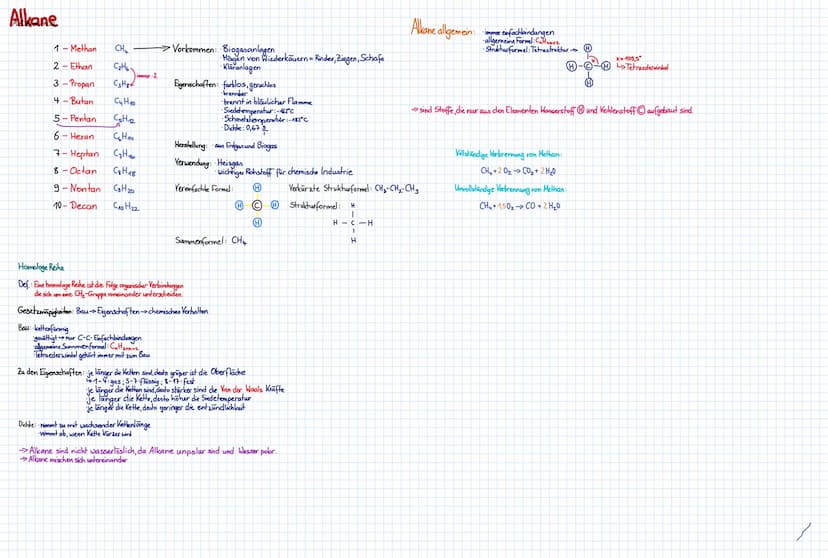 Alkane
1 - Methan CH₄ → Vorkommen: · Biogasanlagen
· Mägen von Wiederkäuern = Rinder, Ziegen, Schafe
· Kläranlagen
2 - Ethan C₂H₆
3 - Propan C₃H₈
4 - Butan C₄H₁₀
5 - Pentan C₅H₁₂
6 - Hexan C₆H₁₄
7 - Heptan C₇H₁₆
8 - Octan C₈H₁₈
9 - Nonan C₉H₂₀
10 - Decan C₁₀H₂₂
Eigenschaften: · farblos, geruchlos
· brennbar
· brennt in bläulicher Flamme
· Siedetemperatur:
· Schmelztemperatur: -182°C
· Dichte: 0,67
Herstellung: aus Erdgas und Biogas
Verwendung: · Heizgas
· wichtiger Rohstoff für chemische Industrie
Vereinfachte Formel:
H
H C H
H
Verkürzte Strukturformel: CH₃-CH₂-CH₃
Strukturformel:
H
H - C - H
H
Summenformel: CH₄
Alkane allgemein: · immer einfachbindungen
· allgemeine Formel: CₙH₂ₙ₊₂
· Strukturformel: Tetrastruktur →
H
H - C - H
H
x = 109,5°
↳ Tetraederwinkel
→ sind Stoffe, die nur aus den Elementen Wasserstoff H und Kohlenstoff C aufgebaut sind.
Vollständige Verbrennung von Methan:
CH₄ + 2 O₂ → CO₂ + 2 H₂O
Unvollständige Verbrennung von Methan:
CH₄ + 1,5 O₂ → CO + 2 H₂O
Homologe Reihe
Def.: Eine homologe Reihe ist die Folge organischer Verbindungen
die sich um eine CH₂-Gruppe voneinander unterscheiden.
Gesetzmäßigkeiten: Bau → Eigenschaften → chemisches Verhalten
Bau: · kettenförmig
· gesättigt → nur C-C-Einfachbindungen
· allgemeine Summenformel: CₙH₂ₙ₊₂
· Tetraederwinkel gehört immer mit zum Bau
Zu den Eigenschaften: · je länger die Ketten sind, desto größer ist die Oberfläche
↳ 1-4: gas; 5-7: flüssig; 8-17: fest
· je länger die Ketten sind, desto stärker sind die Van der Waals Kräfte
· je länger die Kette, desto höher die Siedetemperatur
· je länger die Kette, desto geringer die entzündlichkeit
Dichte: · nimmt zu mit wachsender Kettenlänge
· nimmt ab, wenn Kette kürzer wird
→ Alkane sind nicht wasserlöslich, da Alkane unpolar sind und Wasser polar.
→ Alkane mischen sich untereinander